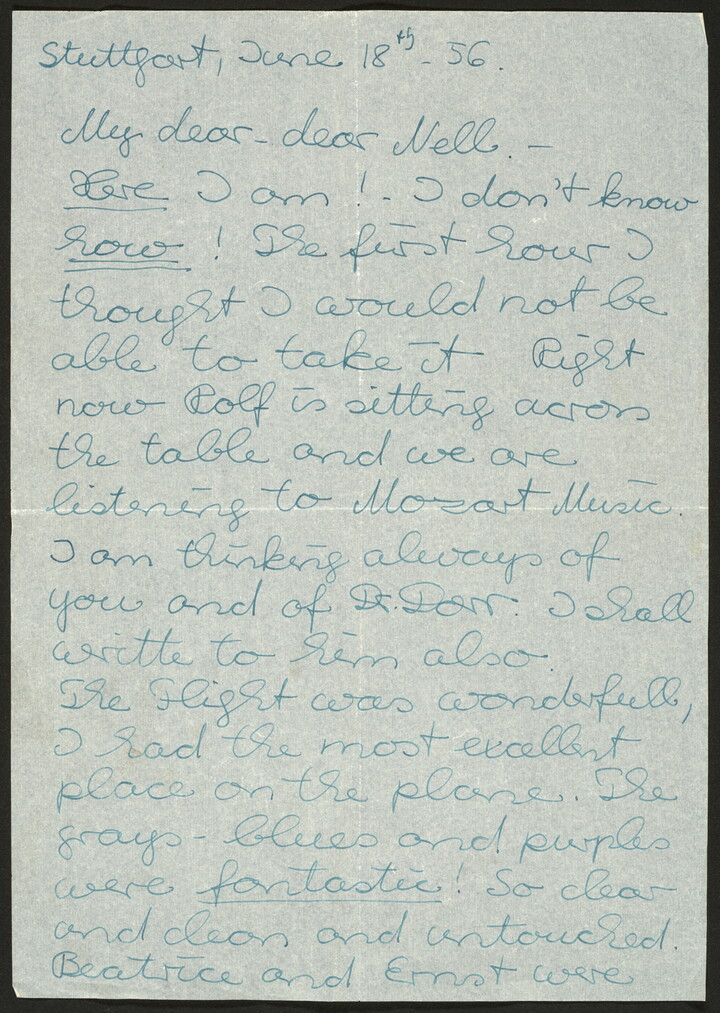 Stuttgart, June 18th - 56.
My dear - dear Nell. -
Here I am! - I don't know
how! The first hour I
thought I would not be
able to take it Right
now Rolf is sitting across
the table and we are
listening to Mozart Music.
I am thinking always of
you and of Dr. Dorr. I shall
writte to him also.
The Flight was wonderfull,
I had the most excellent
place on the plane. The
grays - blues and purples
were fantastic! So clear
and clean and untouched.
Beatrice and Ernst were